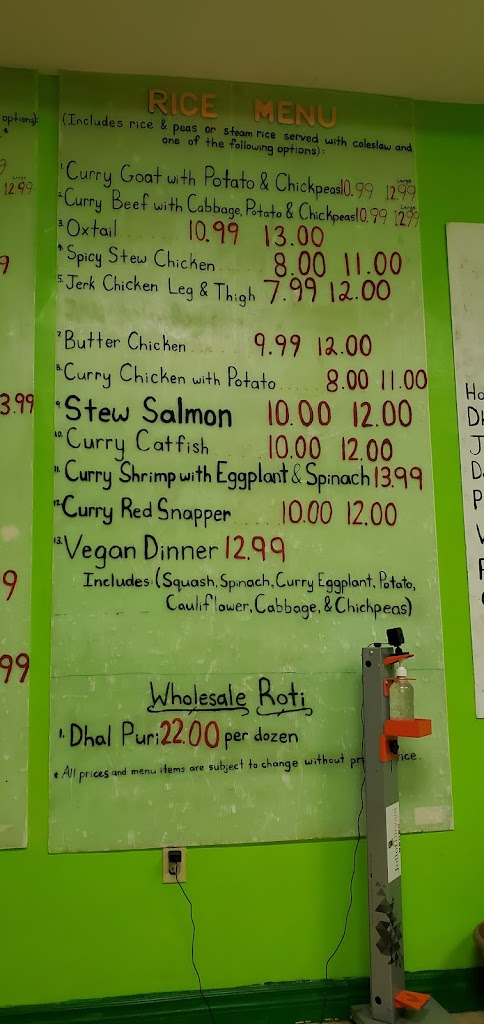 RICE MENU
(Includes rice & peas or steam rice served with coleslaw and
one of the following options):
1. Curry Goat with Potato & Chickpeas 10.99 12.99
2. Curry Beef with Cabbage, Potato & Chickpeas 10.99 12.99
3. Oxtail 10.99 13.00
4. Spicy Stew Chicken 8.00 11.00
5. Jerk Chicken Leg & Thigh 7.99 12.00
7. Butter Chicken 9.99 12.00
8. Curry Chicken with Potato 8.00 11.00
9. Stew Salmon 10.00 12.00
10. Curry Catfish 10.00 12.00
11. Curry Shrimp with Eggplant & Spinach 13.99
12. Curry Red Snapper 10.00 12.00
13. Vegan Dinner 12.99
Includes: (Squash, Spinach, Curry Eggplant, Potato,
Cauliflower, Cabbage, & Chickpeas)
Wholesale Roti
1. Dhal Puri 22.00 per dozen
* All prices and menu items are subject to change without
options):
12.99
3.99